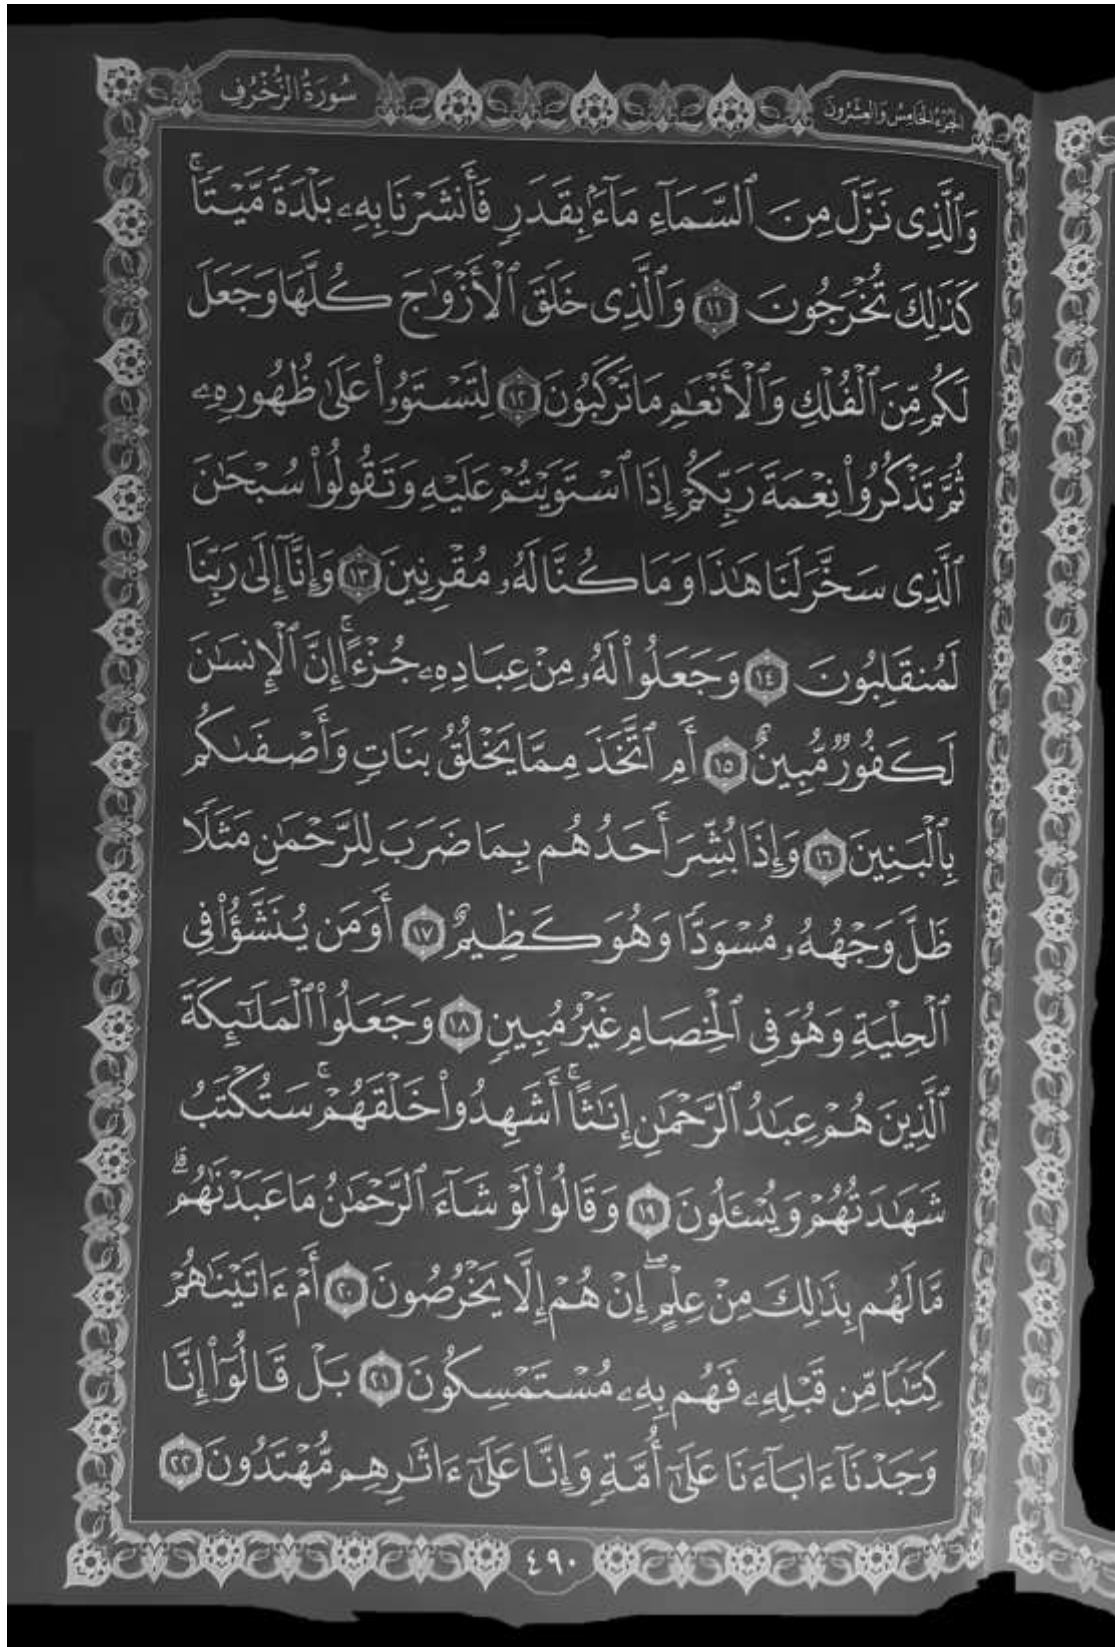 الجزء الخامس والعشرون
سورة الزخرف
وَٱلَّذِى نَزَّلَ مِنَ ٱلسَّمَآءِ مَآءَۢ بِقَدَرٍ فَأَنشَرْنَا بِهِۦ بَلْدَةً مَّيْتًاۚ
كَذَٰلِكَ تُخْرَجُونَ ١١ وَٱلَّذِى خَلَقَ ٱلْأَزْوَٰجَ كُلَّهَا وَجَعَلَ
لَكُم مِّنَ ٱلْفُلْكِ وَٱلْأَنْعَٰمِ مَا تَرْكَبُونَ ١٢ لِتَسْتَوُۥا۟ عَلَىٰ ظُهُورِهِۦ
ثُمَّ تَذْكُرُوا۟ نِعْمَةَ رَبِّكُمْ إِذَا ٱسْتَوَيْتُمْ عَلَيْهِ وَتَقُولُوا۟ سُبْحَٰنَ
ٱلَّذِى سَخَّرَ لَنَا هَٰذَا وَمَا كُنَّا لَهُۥ مُقْرِنِينَ ١٣ وَإِنَّآ إِلَىٰ رَبِّنَا
لَمُنقَلِبُونَ ١٤ وَجَعَلُوا۟ لَهُۥ مِنْ عِبَادِهِۦ جُزْءًاۚ إِنَّ ٱلْإِنسَٰنَ
لَكَفُورٌ مُّبِينٌ ١٥ أَمِ ٱتَّخَذَ مِمَّا يَخْلُقُ بَنَاتٍ وَأَصْفَىٰكُم
بِٱلْبَنِينَ ١٦ وَإِذَا بُشِّرَ أَحَدُهُم بِمَا ضَرَبَ لِلرَّحْمَٰنِ مَثَلًا
ظَلَّ وَجْهُهُۥ مُسْوَدًّا وَهُوَ كَظِيمٌ ١٧ أَوَمَن يُنَشَّؤُا۟ فِى
ٱلْحِلْيَةِ وَهُوَ فِى ٱلْخِصَامِ غَيْرُ مُبِينٍ ١٨ وَجَعَلُوا۟ ٱلْمَلَٰٓئِكَةَ
ٱلَّذِينَ هُمْ عِبَٰدُ ٱلرَّحْمَٰنِ إِنَٰثًاۚ أَشَهِدُوا۟ خَلْقَهُمْۚ سَتُكْتَبُ
شَهَٰدَتُهُمْ وَيُسْـَٔلُونَ ١٩ وَقَالُوا۟ لَوْ شَآءَ ٱلرَّحْمَٰنُ مَا عَبَدْنَٰهُمۗ
مَّا لَهُم بِذَٰلِكَ مِنْ عِلْمٍۖ إِنْ هُمْ إِلَّا يَخْرُصُونَ ٢٠ أَمْ ءَاتَيْنَٰهُمْ
كِتَٰبًا مِّن قَبْلِهِۦ فَهُم بِهِۦ مُسْتَمْسِكُونَ ٢١ بَلْ قَالُوٓا۟ إِنَّا
وَجَدْنَآ ءَابَآءَنَا عَلَىٰٓ أُمَّةٍ وَإِنَّا عَلَىٰٓ ءَاثَٰرِهِم مُّهْتَدُونَ ٢٢
٤٩٠